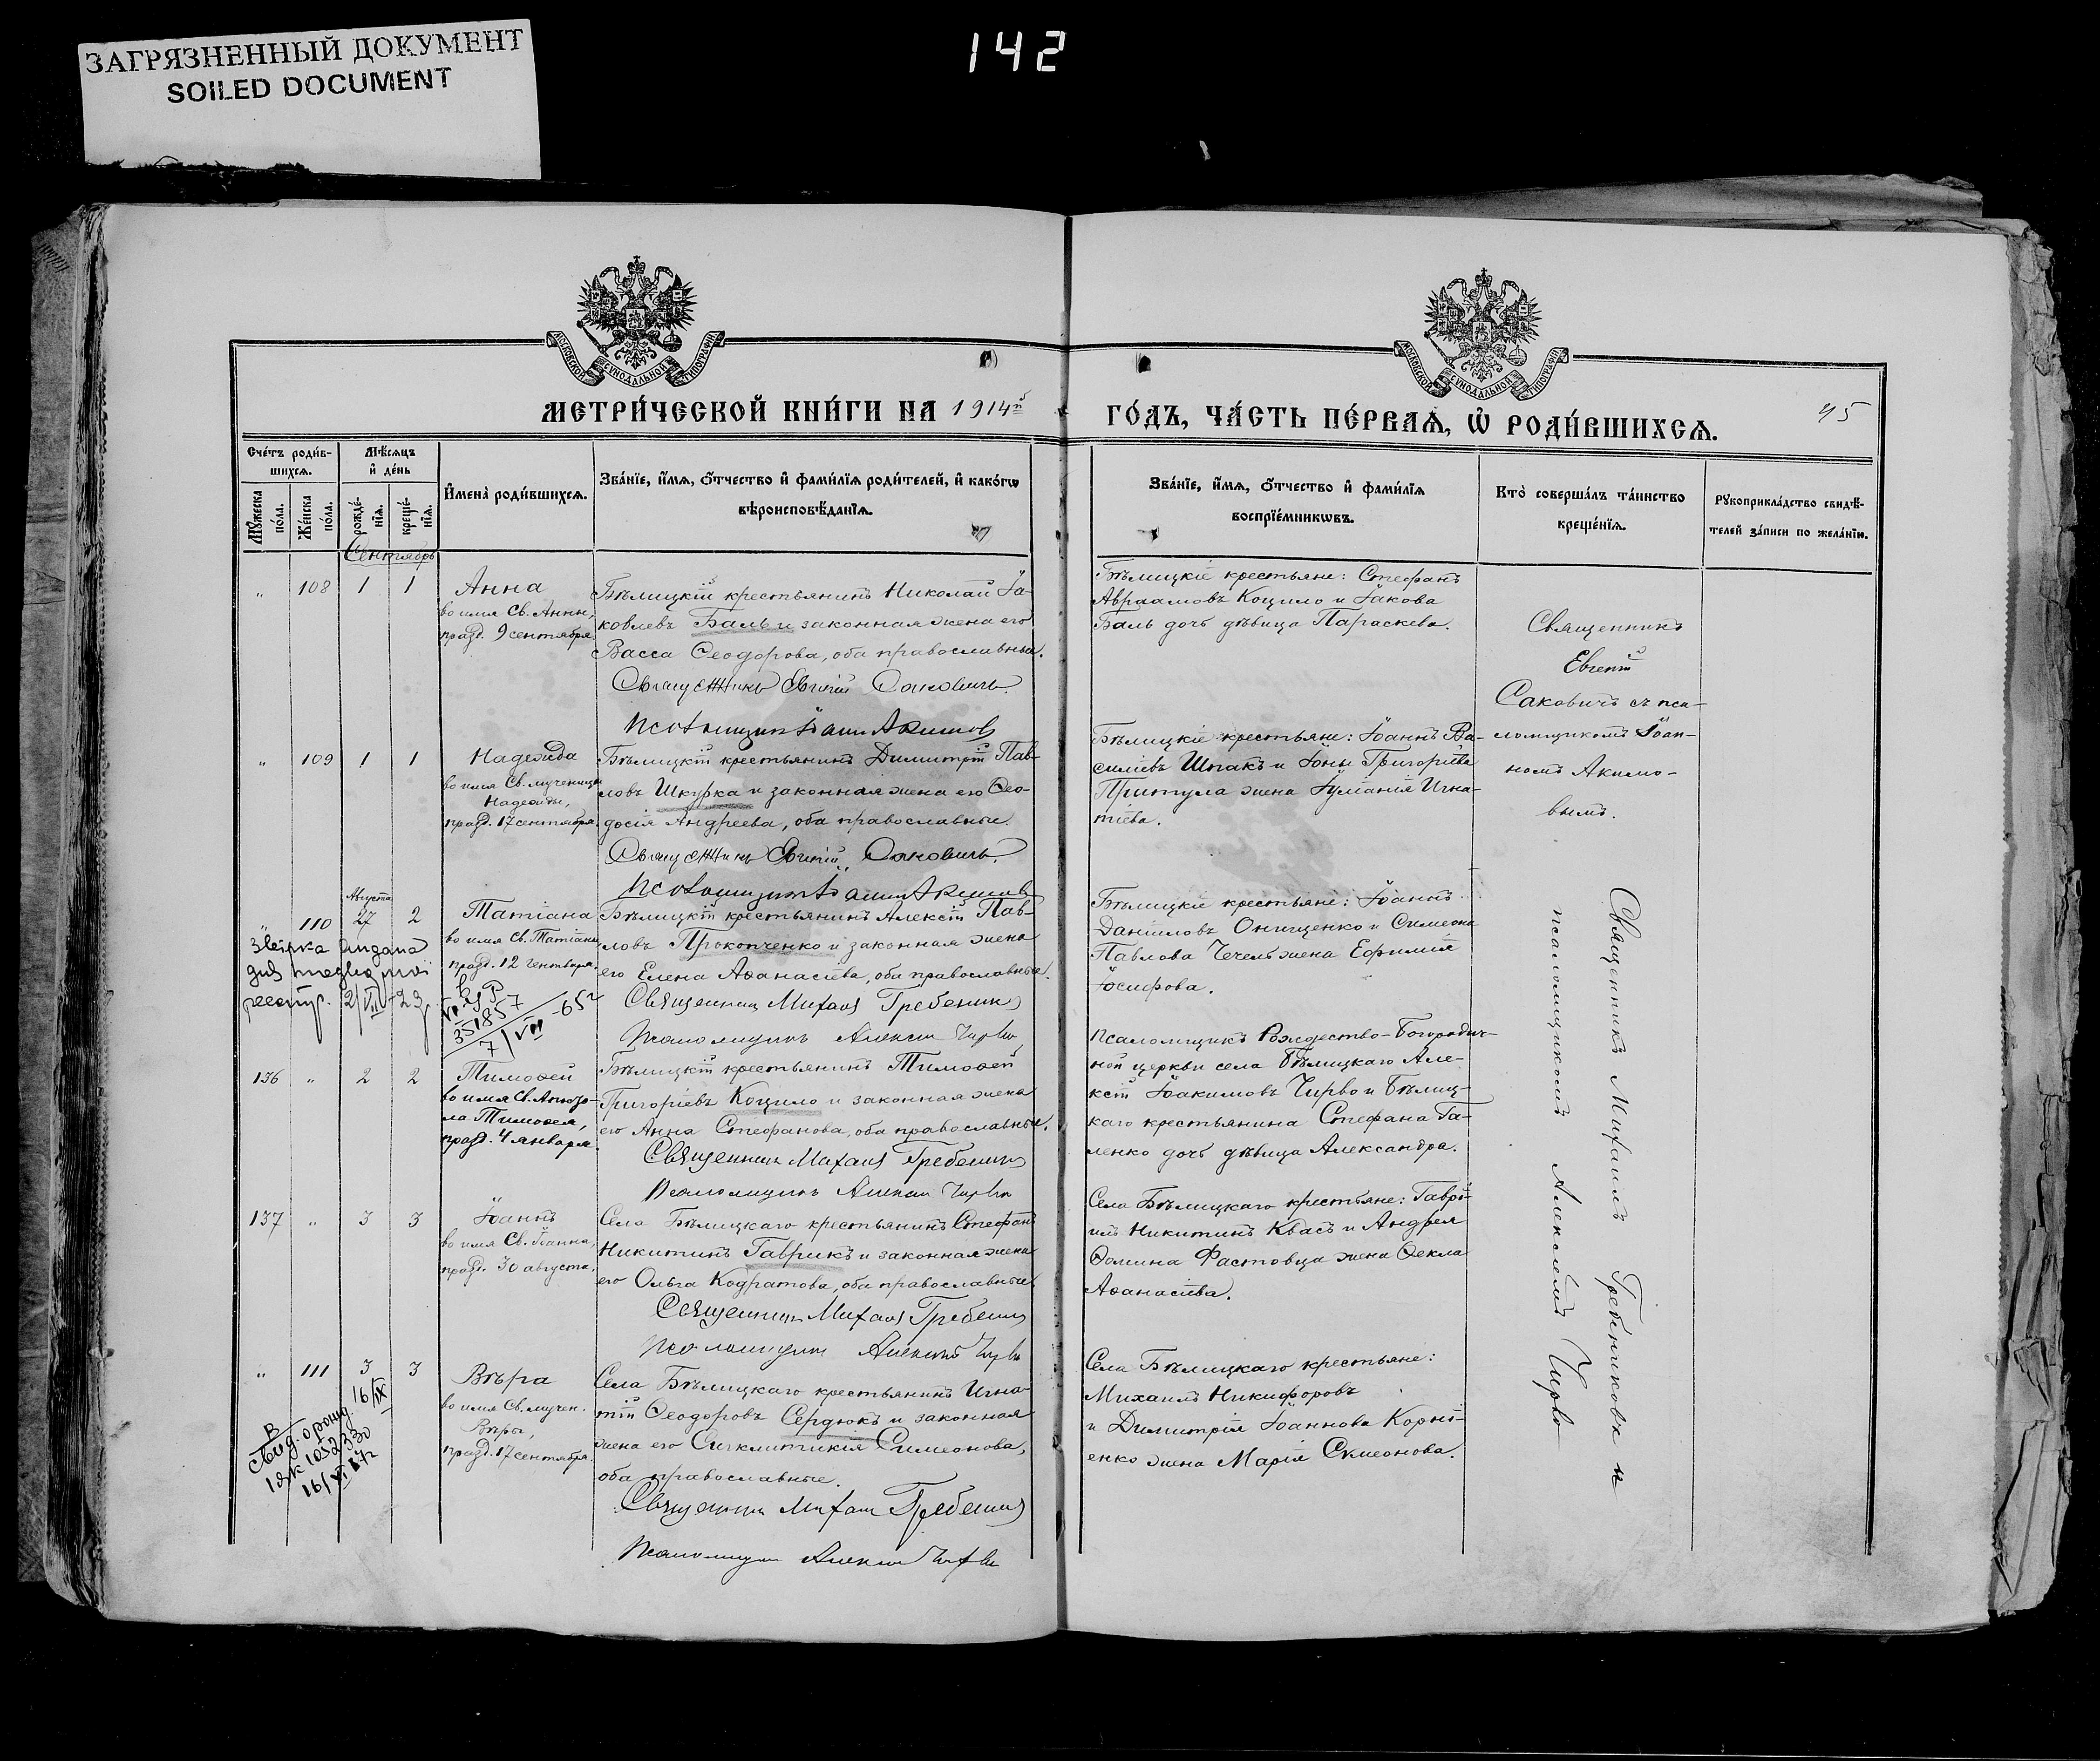 ЗАГРЯЗНЕННЫЙ ДОКУМЕНТ
SOILED DOCUMENT
142
МОСКОВСКОЙ СѴНОДАЛЬНОЙ ТИПОГРАФІИ
МОСКОВСКОЙ СѴНОДАЛЬНОЙ ТИПОГРАФІИ
МЕТРИ́ЧЕСКОЙ КНИ́ГИ НА 1914й
ГО́ДЪ, ЧА́СТЬ ПЕ́РВАѦ, Ѡ РОДИ́ВШИХСѦ.
45
Сче́тъ роди́в-
шихсѧ.
Мѣ́сѧцъ
и҆ де́нь
Мꙋ́жеска
по́ла.
Же́нска
по́ла.
рожде́-
нїѧ.
креще́-
нїѧ.
И҆мена̀ роди́вшихсѧ.
Зва́нїе, и҆́мѧ, ѻ҆́тчество и҆ фами́лїѧ роди́телей, и҆ како́гѡ
вѣроисповѣ́данїѧ.
Зва́нїе, и҆́мѧ, ѻ҆́тчество и҆ фами́лїѧ
воспрїе́мникѡвъ.
Кто̀ соверша́лъ та́инство
креще́нїѧ.
Рꙋкоприкла́дство свидѣ́-
телей за́писи по жела́нїю.
Сентябрь
„ 108 1 1 Анна
во имя Св. Анны,
празд. 9 сентября.
Бѣлицкій крестьянинъ Николай Іа-
ковлевъ Баль и законная жена его
Васса Ѳеодорова, оба православные.
Священникъ Евгеній Саковичъ
Псаломщикъ Іоаннъ Акимов
Бѣлицкіе крестьяне: Стефанъ
Авраамовъ Коцило и Іакова
Баль дочь дѣвица Параскева.
Священникъ
Евгеній
Саковичъ съ пса-
ломщикомъ Іоан-
номъ Акимо-
вымъ.
„ 109 1 1 Надежда
во имя Св. мученицы
Надежды,
празд. 17 сентября.
Бѣлицкій крестьянинъ Димитрій Пав-
ловъ Шкурка и законная жена его Ѳео-
досія Андреева, оба православные.
Священникъ Евгеній Саковичъ
Псаломщикъ Іоаннъ Акимов
Бѣлицкіе крестьяне: Іоаннъ Ва-
силіевъ Шпакъ и Іоны Григоріева
Притула жена Іуліанія Игна-
тіева.
Августа
„ 110 27 2 Татіана
во имя Св. Татіаны,
празд. 12 Генваря.
Бѣлицкій крестьянинъ Алексій Пав-
ловъ Прокопченко и законная жена
его Елена Аѳанасіева, оба православные.
Священник Михаил Гребеник
Псаломщикъ Алексій Чирво
2/VII-23
351857
7/VII-65г
Бѣлицкіе крестьяне: Іоаннъ
Даніиловъ Онищенко и Симеона
Павлова Чечель жена Ефимія
Іосифова.
136 „ 2 2 Тимоѳей
во имя Св. Апосто-
ла Тимоѳея,
празд. 4 января.
Бѣлицкій крестьянинъ Тимоѳей
Григоріевъ Коцило и законная жена
его Анна Стефанова, оба православные.
Священник Михаил Гребеник
Псаломщикъ Алексій Чирво
Псаломщикъ Рождество-Богородич-
ной церкви села Бѣлицкаго Але-
ксій Іоакимовъ Чирво и Бѣлиц-
каго крестьянина Стефана Га-
ленко дочь дѣвица Александра.
137 „ 3 3 Іоаннъ
во имя Св. Іоанна,
празд. 30 августа.
Села Бѣлицкаго крестьянинъ Стефанъ
Никитинъ Гаврикъ и законная жена
его Ольга Кодратова, оба православные
Священник Михаил Гребеник
Псаломщикъ Алексій Чирво
Села Бѣлицкаго крестьяне: Гаврі-
илъ Никитинъ Квасъ и Андрея
Ѳомина Фастовца жена Ѳекла
Аѳанасіева.
„ 111 3 3 Вѣра
во имя Св. мучен.
Вѣры,
празд. 17 сентября.
Села Бѣлицкаго крестьянинъ Игна-
тій Ѳеодоровъ Сердюкъ и законная
жена его Сигклитикія Симеонова,
оба православные.
Священник Михаил Гребеник
Псаломщикъ Алексій Чирво
Села Бѣлицкаго крестьяне:
Михаилъ Никифоровъ
и Димитрія Іоаннова Корні-
енко жена Марія Симеонова.
Священникъ Михаилъ Гребениковъ и
псаломщикомъ Алексѣемъ Чирво